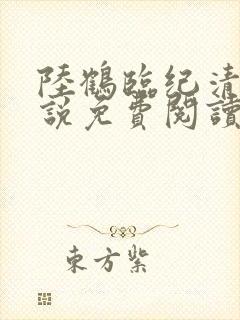 陸鶴臨纪清
說免費閱讀
東方紫